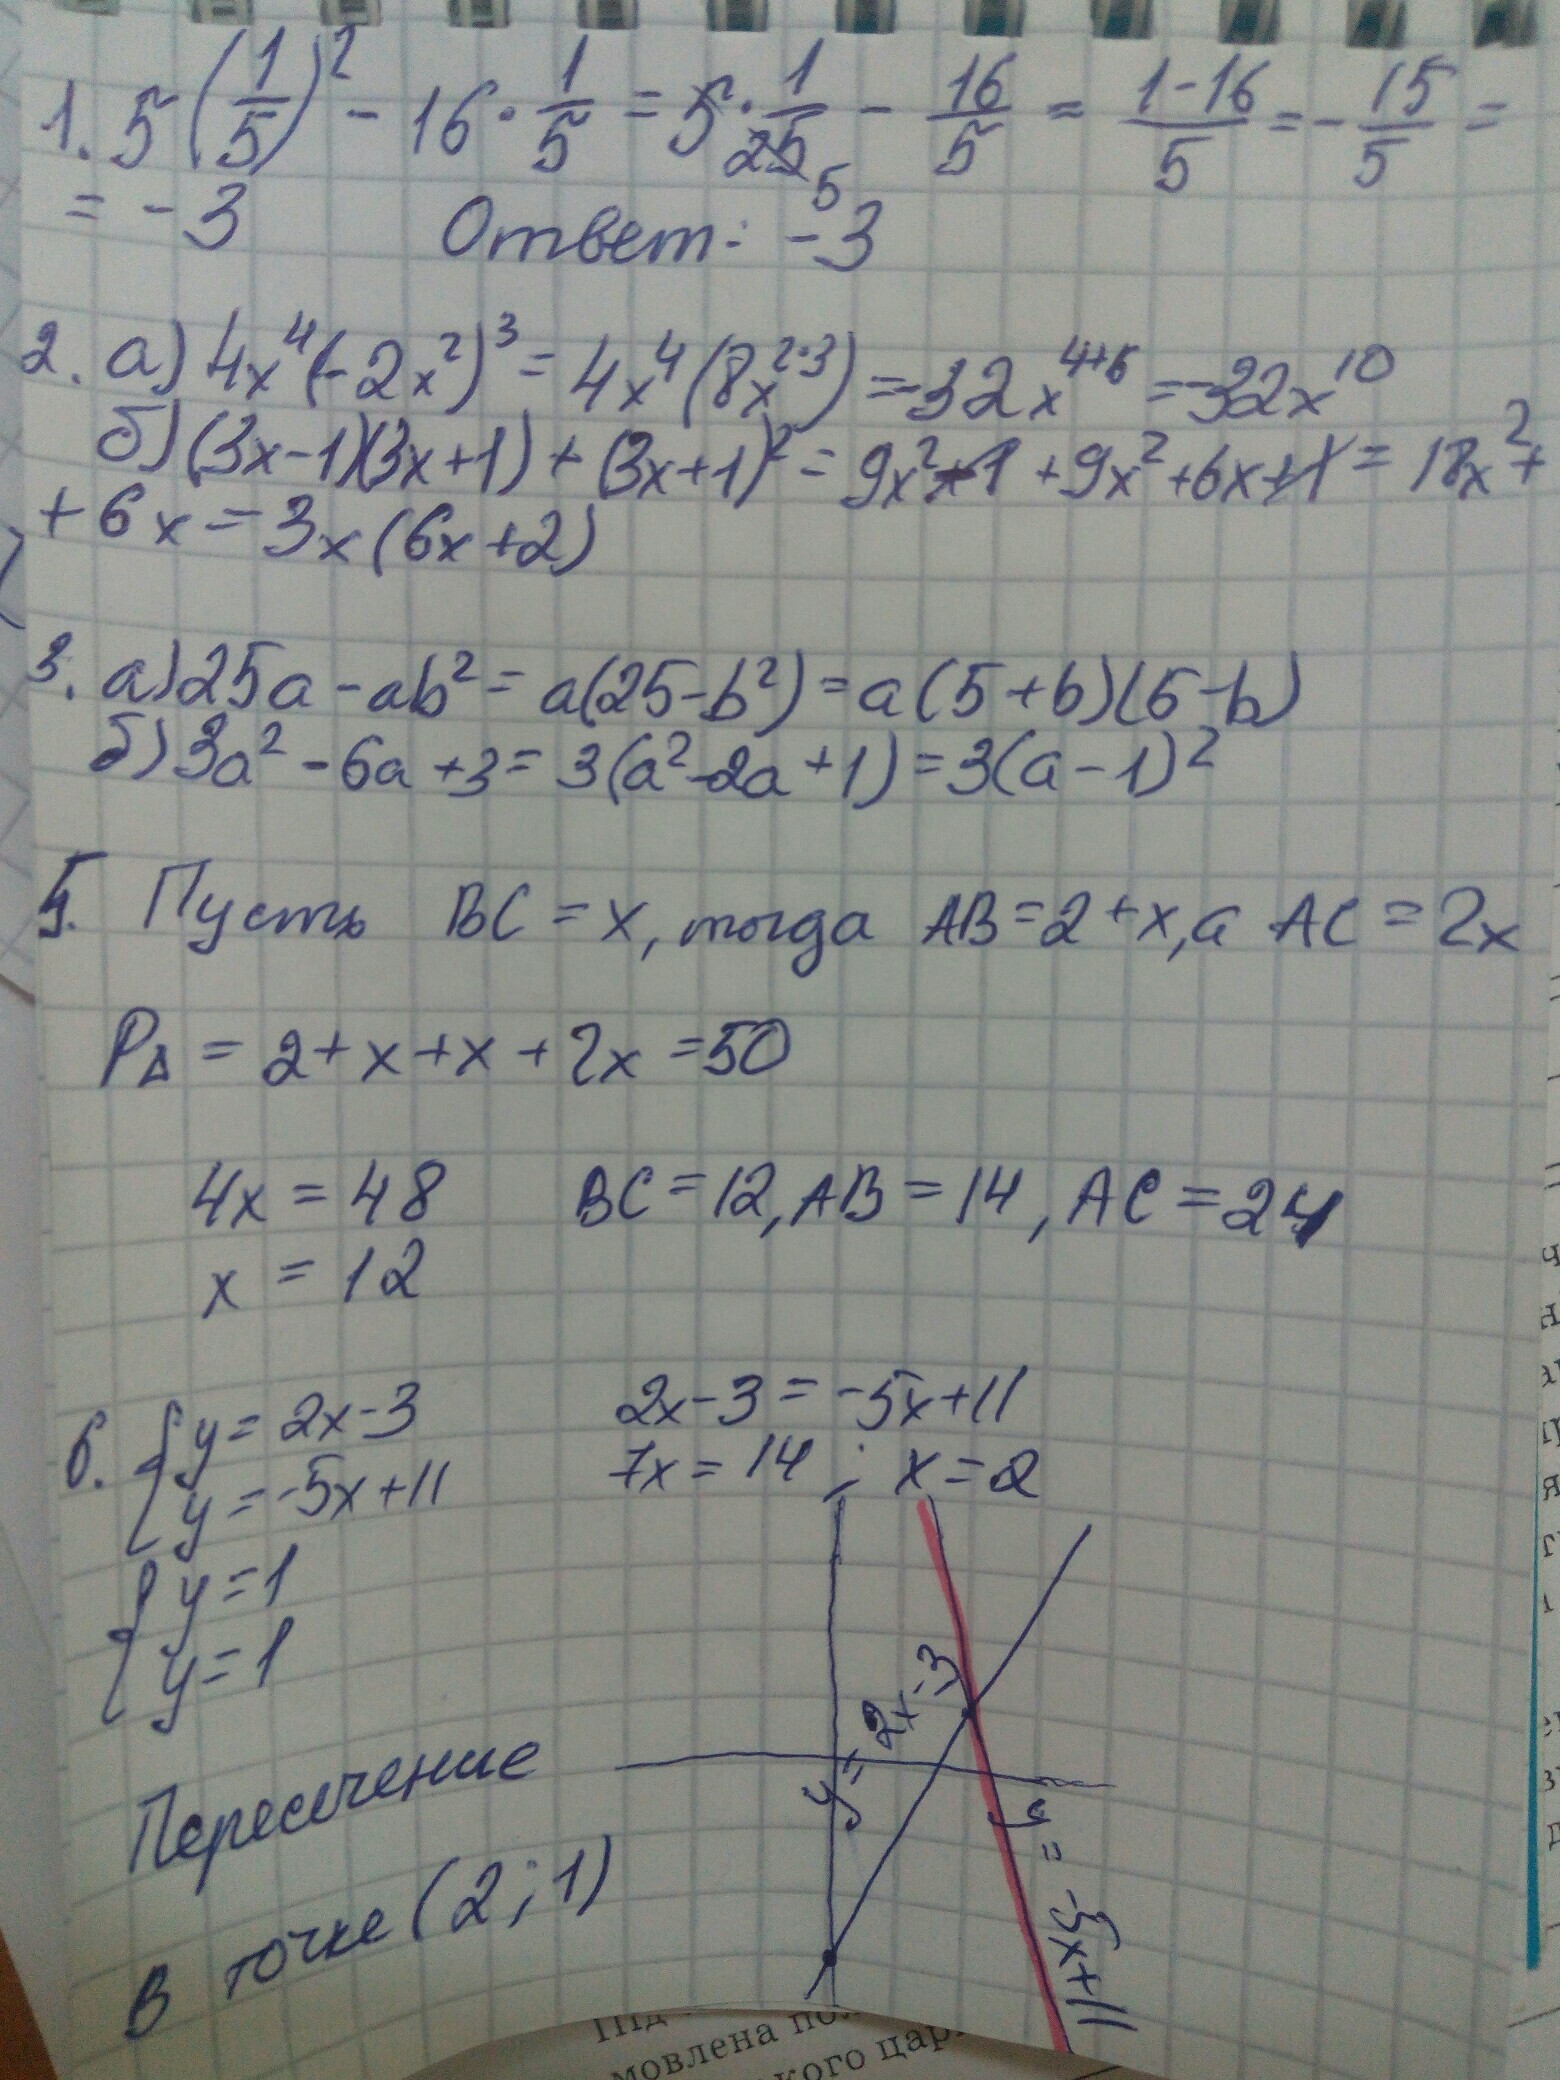 1. 5(1/5)² - 16 · 1/5 = 5 · 1/25 5 - 16/5 = (1-16)/5 = -15/5 =
= -3 Ответ: -3
2. а) 4x⁴(-2x²)³ = 4x⁴(8x²·³) = -32x⁴⁺⁶ = -32x¹⁰
б) (3x-1)(3x+1) + (3x+1)² = 9x² - 1 + 9x² + 6x + 1 = 18x² +
+ 6x = 3x(6x+2)
3. а) 25a - ab² = a(25-b²) = a(5+b)(5-b)
б) 3a² - 6a + 3 = 3(a² - 2a + 1) = 3(a-1)²
5. Пусть BC = x, тогда AB = 2 + x, а AC = 2x
P∆ = 2 + x + x + 2x = 50
4x = 48 BC = 12, AB = 14, AC = 24
x = 12
6. { y = 2x-3 2x-3 = -5x+11
y = -5x+11 7x = 14; x = 2
{ y = 1
y = 1
y = 2x-3
y = -5x+11
Пересечение
в точке (2; 1)
мовлена
кого